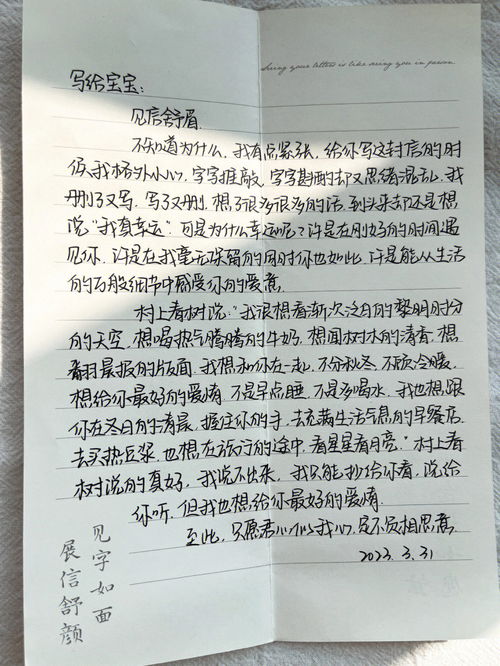 Seeing your letter is like seeing you in person
写给宝宝:
见信舒眉.
不知道为什么,我有点紧张,给你写这封信的时
候,我格外小心,字字推敲,字字斟酌却又思绪混乱,我
删了又写,写了又删,想了很多很多的话,到头来却还是想
说"我真幸运".可是为什么幸运呢?许是在刚好的时间遇
见你,许是在我毫无保留的同时你也如此,许是能从生活
的百般细节中感受你的爱意.
村上春树说:"我很想看渐次泛白的黎明时分
的天空,想喝热气腾腾的牛奶,想闻树木的清香,想
翻晨报的版面.我想和你在一起,不分秋冬,不顾冷暖,
想给你最好的爱情,不是早点睡,不是多喝水,我也想跟
你在冬日的清晨,握住你的手,去充满生活气息的早餐店,
去买热豆浆,也想在旅行的途中,看星星看月亮."村上春
树说的真好,我说不出来,我只能抄给你看,说给
你听,但我也想给你最好的爱情.
至此,只愿君心似我心,定不负相思意.
2023.3.31
见字如面
展信舒颜